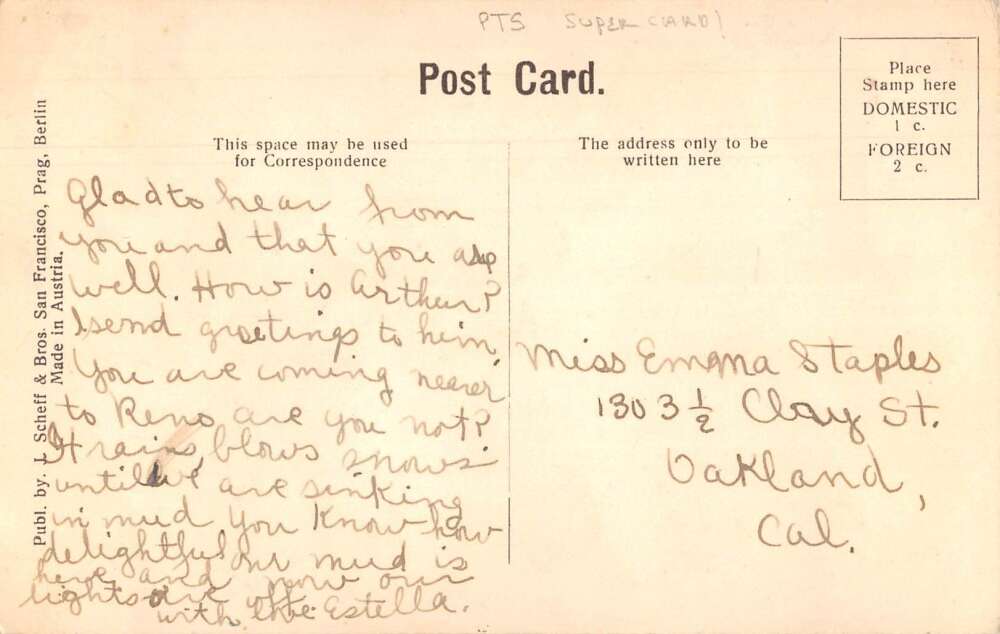 PTS SUPER CARD!
Post Card.
Place
Stamp here
DOMESTIC
1 c.
FOREIGN
2 c.
This space may be used
for Correspondence
The address only to be
written here
Publ. by. J. Scheff & Bros. San Francisco, Prag, Berlin
Made in Austria.
Glad to hear from
you and that you are
well. How is Arthur?
I send greetings to him.
You are coming nearer
to Reno are you not?
It rains, blows snows
until we are sinking
in mud. You know how
delightful our mud is
here, and now our
lights are off.
with love Estella.
Miss Emma Staples
1303 ½ Clay St.
Oakland,
Cal.